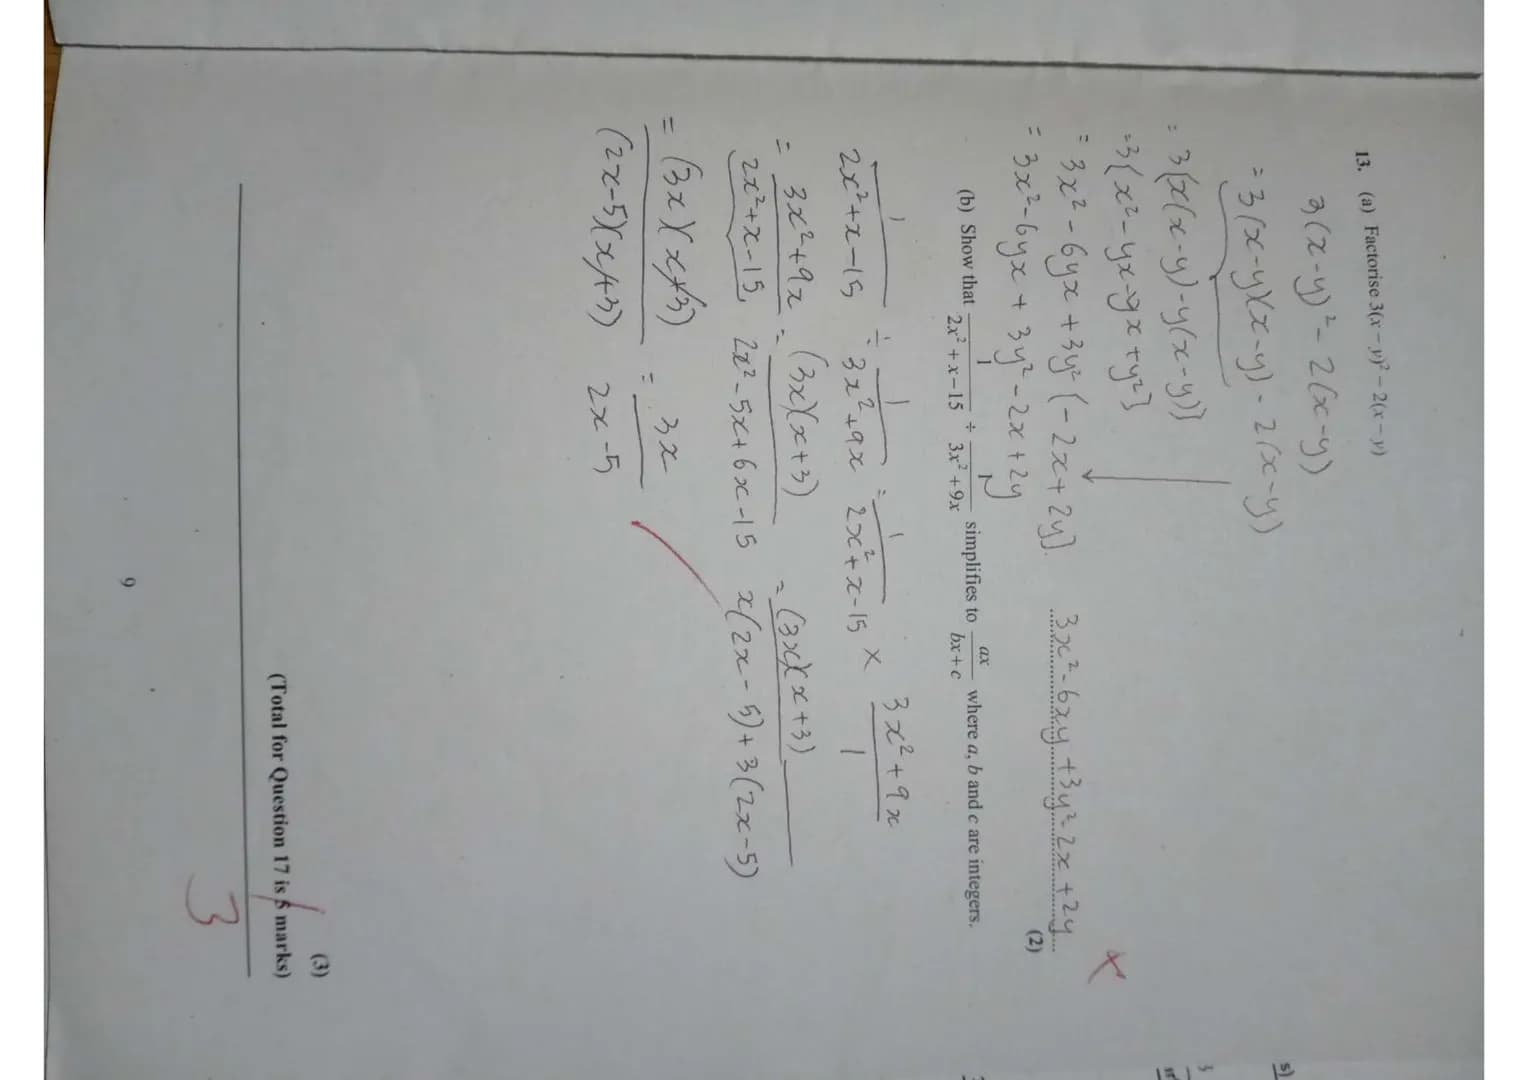 13. (a) Factorise 3(x − y)² − 2(x − y)
3(x-y)² - 2(x-y)
= 3(x-y)(x-y) - 2(x-y)
= 3{x(x-y)-y(x-y)}
=3{x²-yx-yx+y²}
= 3x² - 6yx + 3y² (-2x+2y)
= 3x²-6yx + 3y²-2x+2y
3x²-6xy+3y²-2x+2y
(2)
(b) Show that 1/(2x² + x − 15) ÷ 1/(3x² + 9x) simplifies to ax/(bx + c) where a, b and c are integers.
1/(2x²+x-15) ÷ 1/(3x²+9x) = 1/(2x²+x-15) × (3x²+9x)/1
= (3x²+9x)/(2x²+x-15) = (3x)(x+3)/(2x²-5x+6x-15) = (3x)(x+3)/(x(2x-5)+3(2x-5))
= (3x)(x+3)/((2x-5)(x+3)) = 3x/(2x-5)
(3)
(Total for Question 17 is 5 marks)
3
9